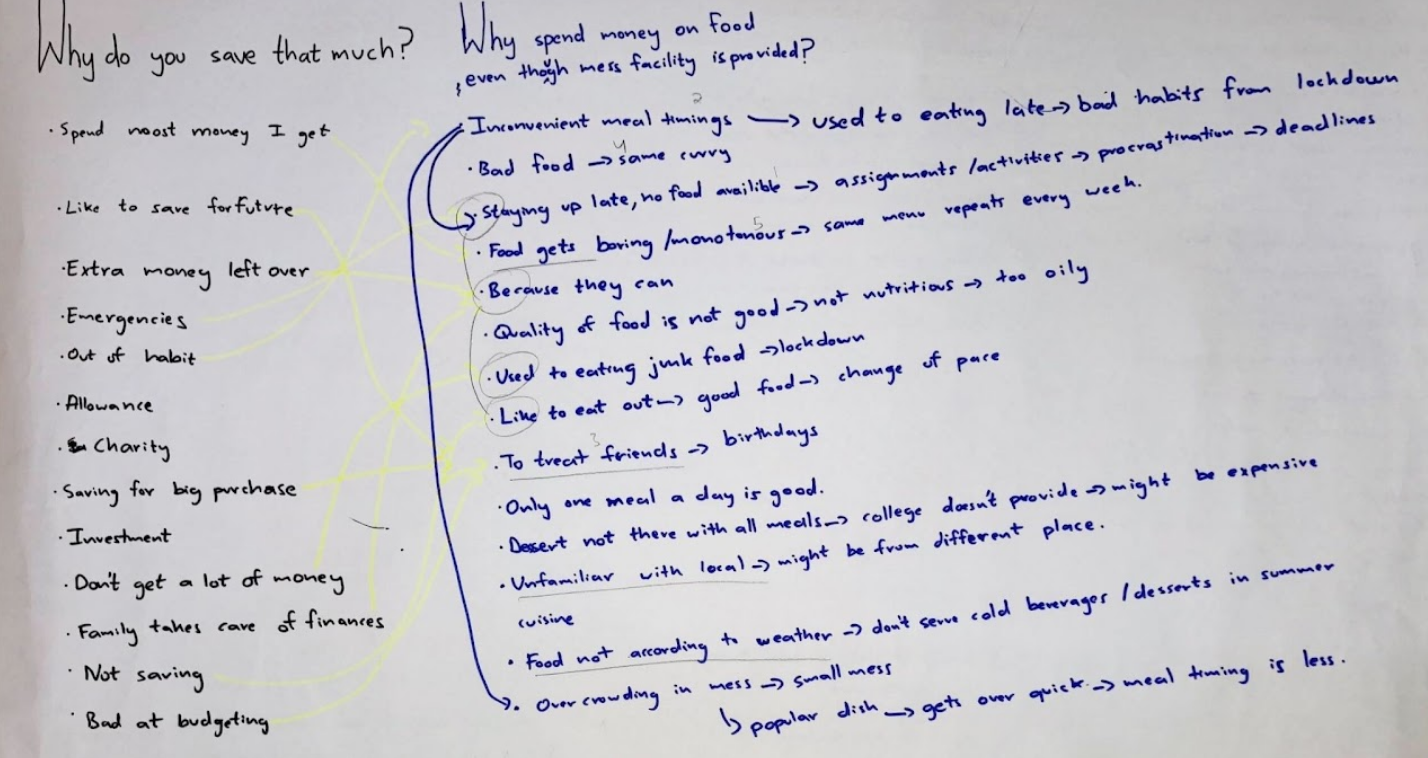 Why do you save that much?
· Spend most money I get
· Like to save for future
· Extra money left over
· Emergencies
· Out of habit
· Allowance
· Charity
· Saving for big purchase
· Investment
· Don't get a lot of money
· Family takes care of finances
· Not saving
· Bad at budgeting
Why spend money on food
, even though mess facility is provided?
2
· Inconvenient meal timings → used to eating late → bad habits from lockdown
4
· Bad food → same curry
1
· Staying up late, no food availible → assignments /activities → procrastination → deadlines
5
· Food gets boring /monotonous → same menu repeats every week.
· Because they can
· Quality of food is not good → not nutritious → too oily
· Used to eating junk food → lockdown
· Like to eat out → good food → change of pace
3
· To treat friends → birthdays
· Only one meal a day is good.
· Dessert not there with all meals → college doesn't provide → might be expensive
· Unfamiliar with local → might be from different place.
cuisine
· Food not according to weather → don't serve cold beverages / desserts in summer
· Over crowding in mess → small mess
↳ popular dish → gets over quick → meal timing is less.